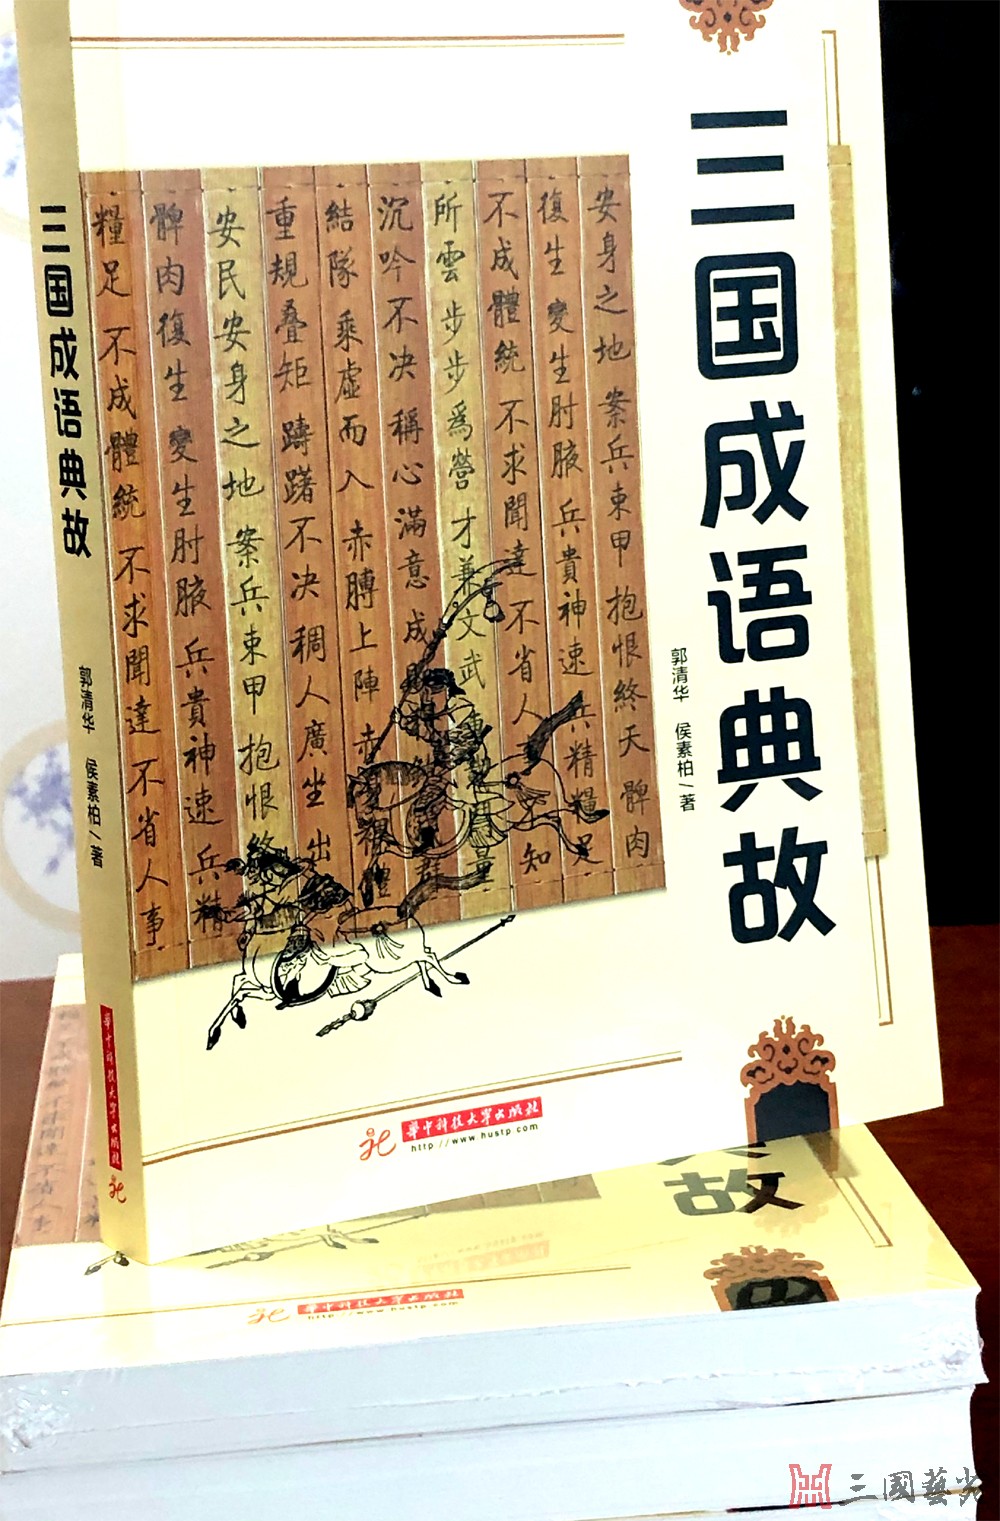 三国成语典故
郭清华 侯素柏/著
安身之地 案兵束甲 抱恨終天 髀肉
復生 變生肘腋 兵貴神速 兵精糧足
不成體統 不求聞達 不省人 知
所雲 步步為營 才兼文武 量
沉吟不决 稱心滿意 成
結隊 乘虛而入 赤膊上陣 赤 體
重規叠矩 躊躇不决 稠人廣坐 出
安民 安身之地 案兵束甲 抱恨終
髀肉復生 變生肘腋 兵貴神速 兵精
糧足 不成體統 不求聞達 不省人事
華中科技大學出版社
http://www.hustp.com
三国成语典故
郭清华 侯素柏/著
華中科技大學出版社
故
華中科技大學出版社
http://www.hustp.com
三國藝苑